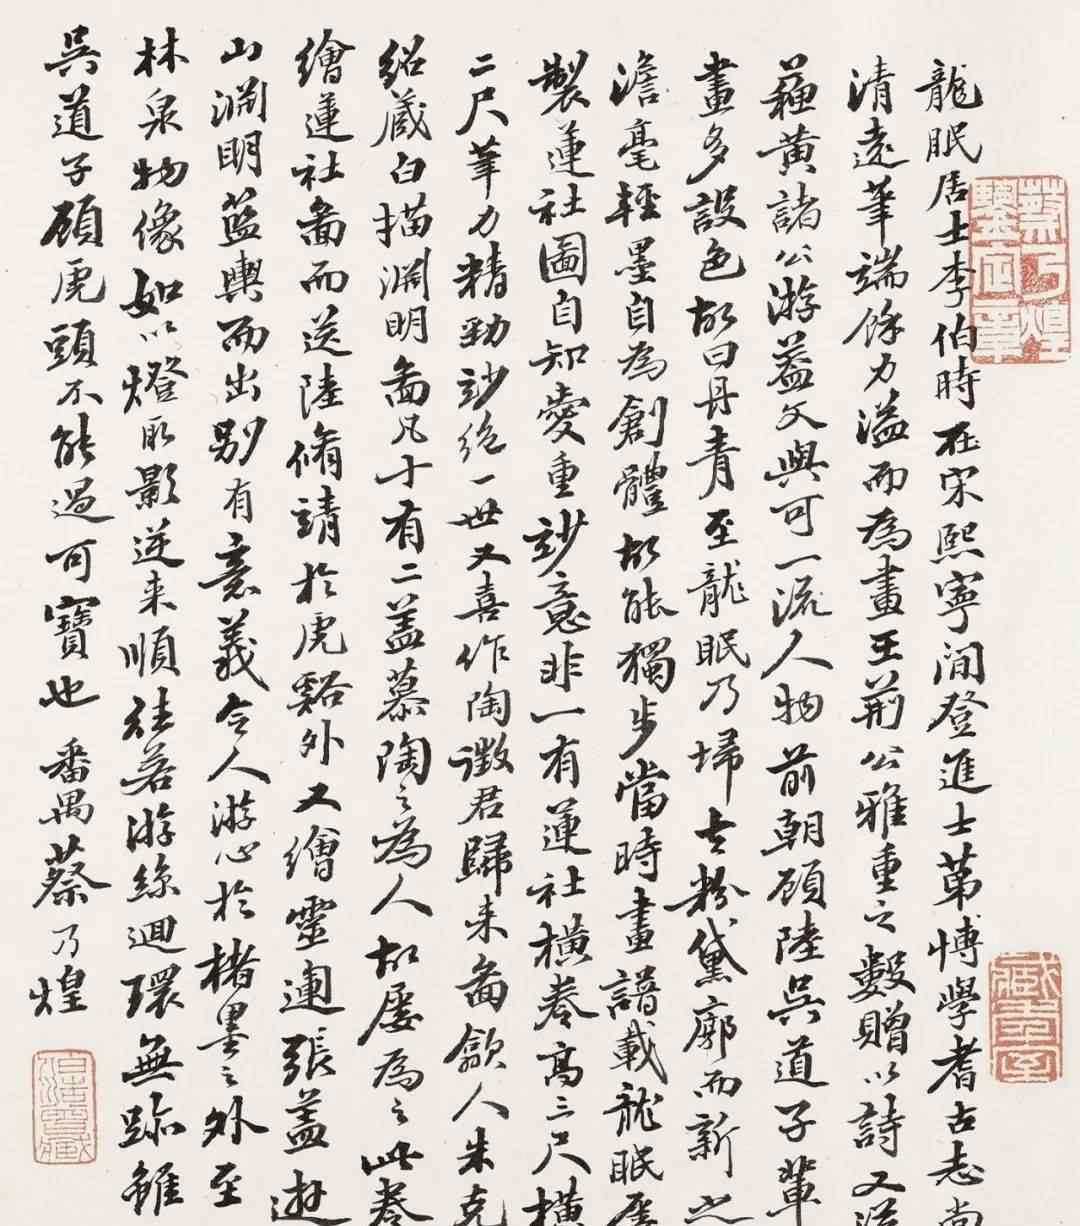 龍眠居士李伯時在宋熙寧間登進士第博學耆古志尚
清遠筆端餘力溢而為畫王荊公雅重之數贈以詩又從
蘓黃諸公游葢文與可一流人物前朝顧陸吳道子輩
畫多設色故曰丹青至龍眠乃埽去粉黛廓而新之
澹毫輕墨自為創體故能獨步當時畫譜載龍眠屢
製蓮社圖自知愛重玅意非一有蓮社橫卷高三尺橫
二尺筆力精勁玅絶一世又喜作陶徵君歸來啚歙人朱克
紹藏白描淵明啚凡十有二蓋慕陶之為人故屢為之此卷
繪蓮社啚而送陸脩靖於虎谿外又繪靈運張蓋遊
山淵明藍輿而出別有意義令人游心於楮墨之外至
林泉物像如以燈取影逆来順往若游絲迴環無跡雖
吳道子顧虎頭不能過可寶也 番禺蔡乃煌
蔡乃煌鑒定章